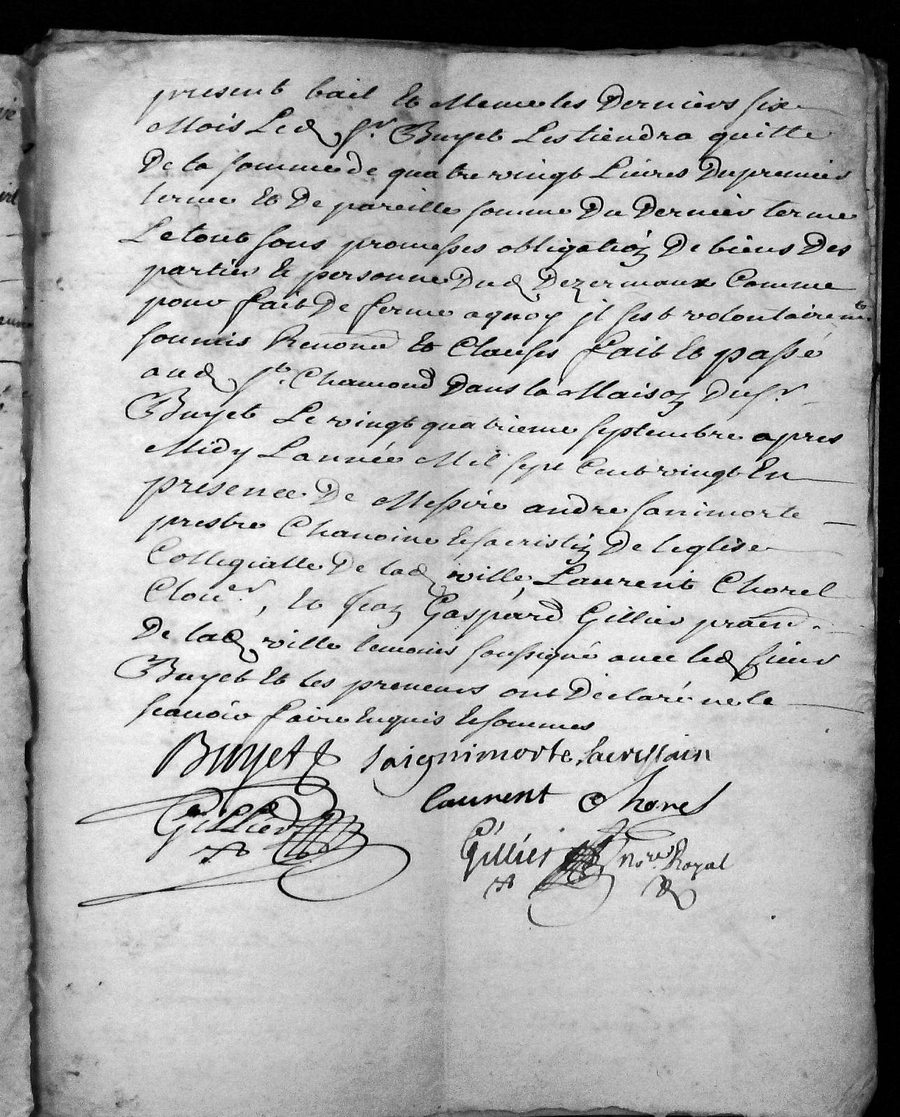 present bail Et Memes les Derniers six
Mois Led Sr. Buyet Les tiendra quitte
De la somme de quatre vingt Livres Du premier
terme Et De pareille somme Du Dernier terme
Le tout sous promesses obligation De biens Des
parties Et personne Dud Dezermaux Comme
pour fait De ferme aquoy jl sest volontairemt
soumis Renond Et Clauses fait Et passé
aud St. Chamond Dans la Maison Du Sr.
Buyet Le vingt quatrieme septembre apres
Midy Lannée Mil sept Cent vingt En
presence De Messire andre sanimorte
prestre Chanoine Et sacristin De leglise
Collegialle De lad ville, Laurent Chorel
Clour., Et jean Gaspard Gillier pratn.
De lad ville temoins soussigné avec led sieur
Buyet Et les preneurs ont Declaré ne le
scavoir faire Enquis Et sommes
Buyet saignimorte sacristain
Gillier laurent Chorel
Gillier Nore. Royal